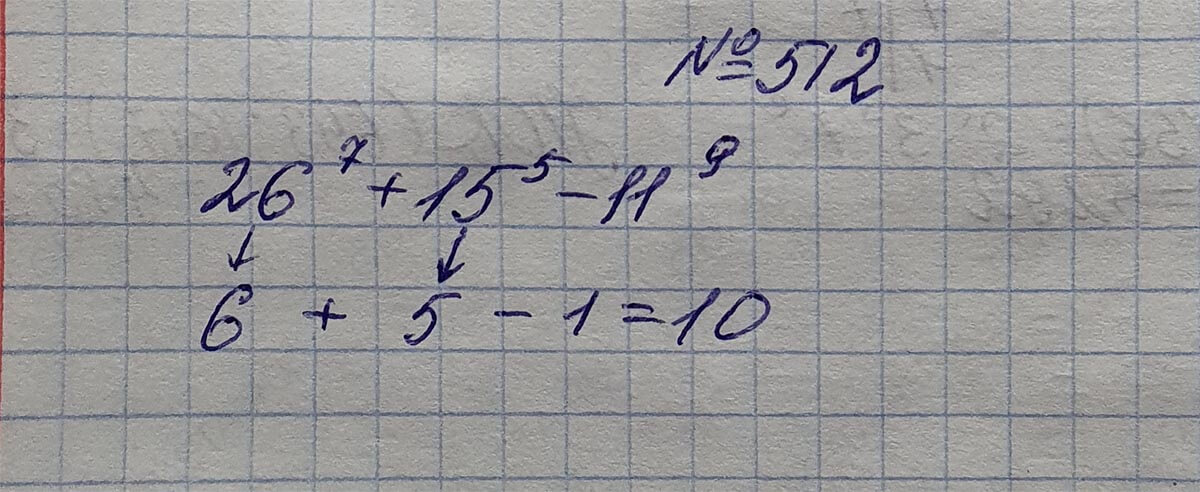 № 512
26⁷ + 15⁵ - 11⁹
↓ ↓
6 + 5 - 1 = 10